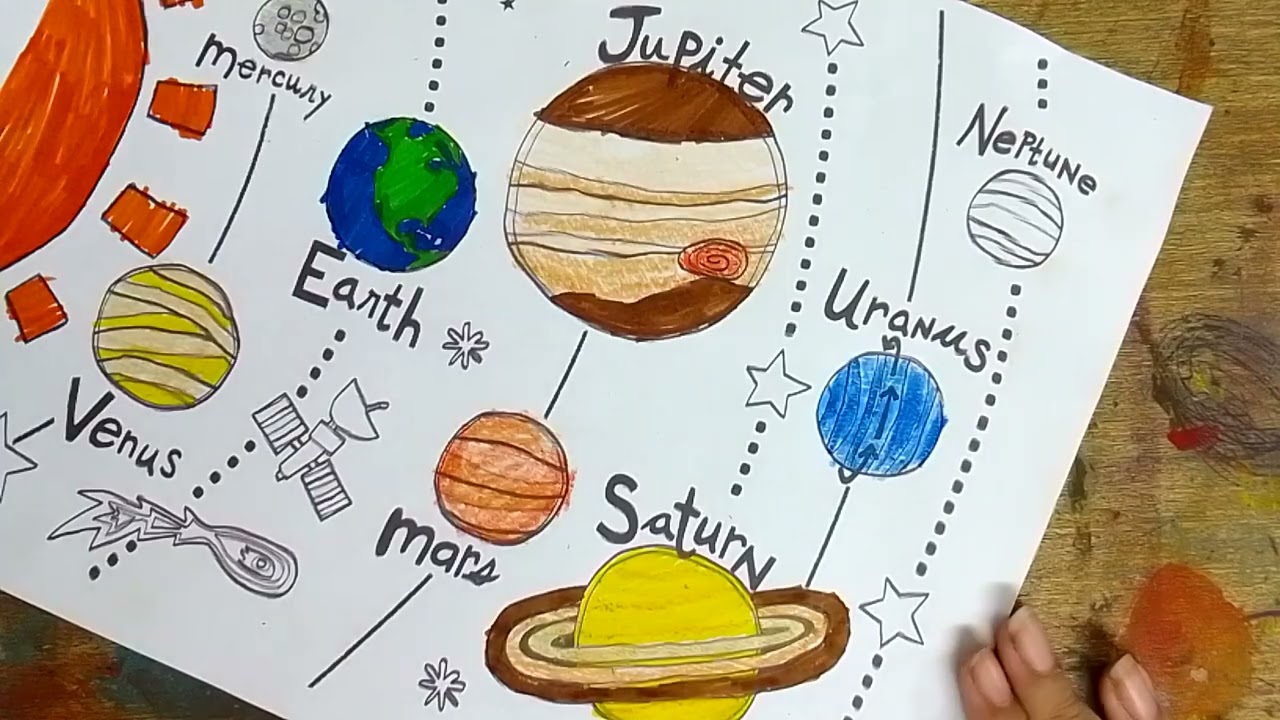 mercury
Venus
Earth
mars
Jupiter
Saturn
Uranus
Neptune